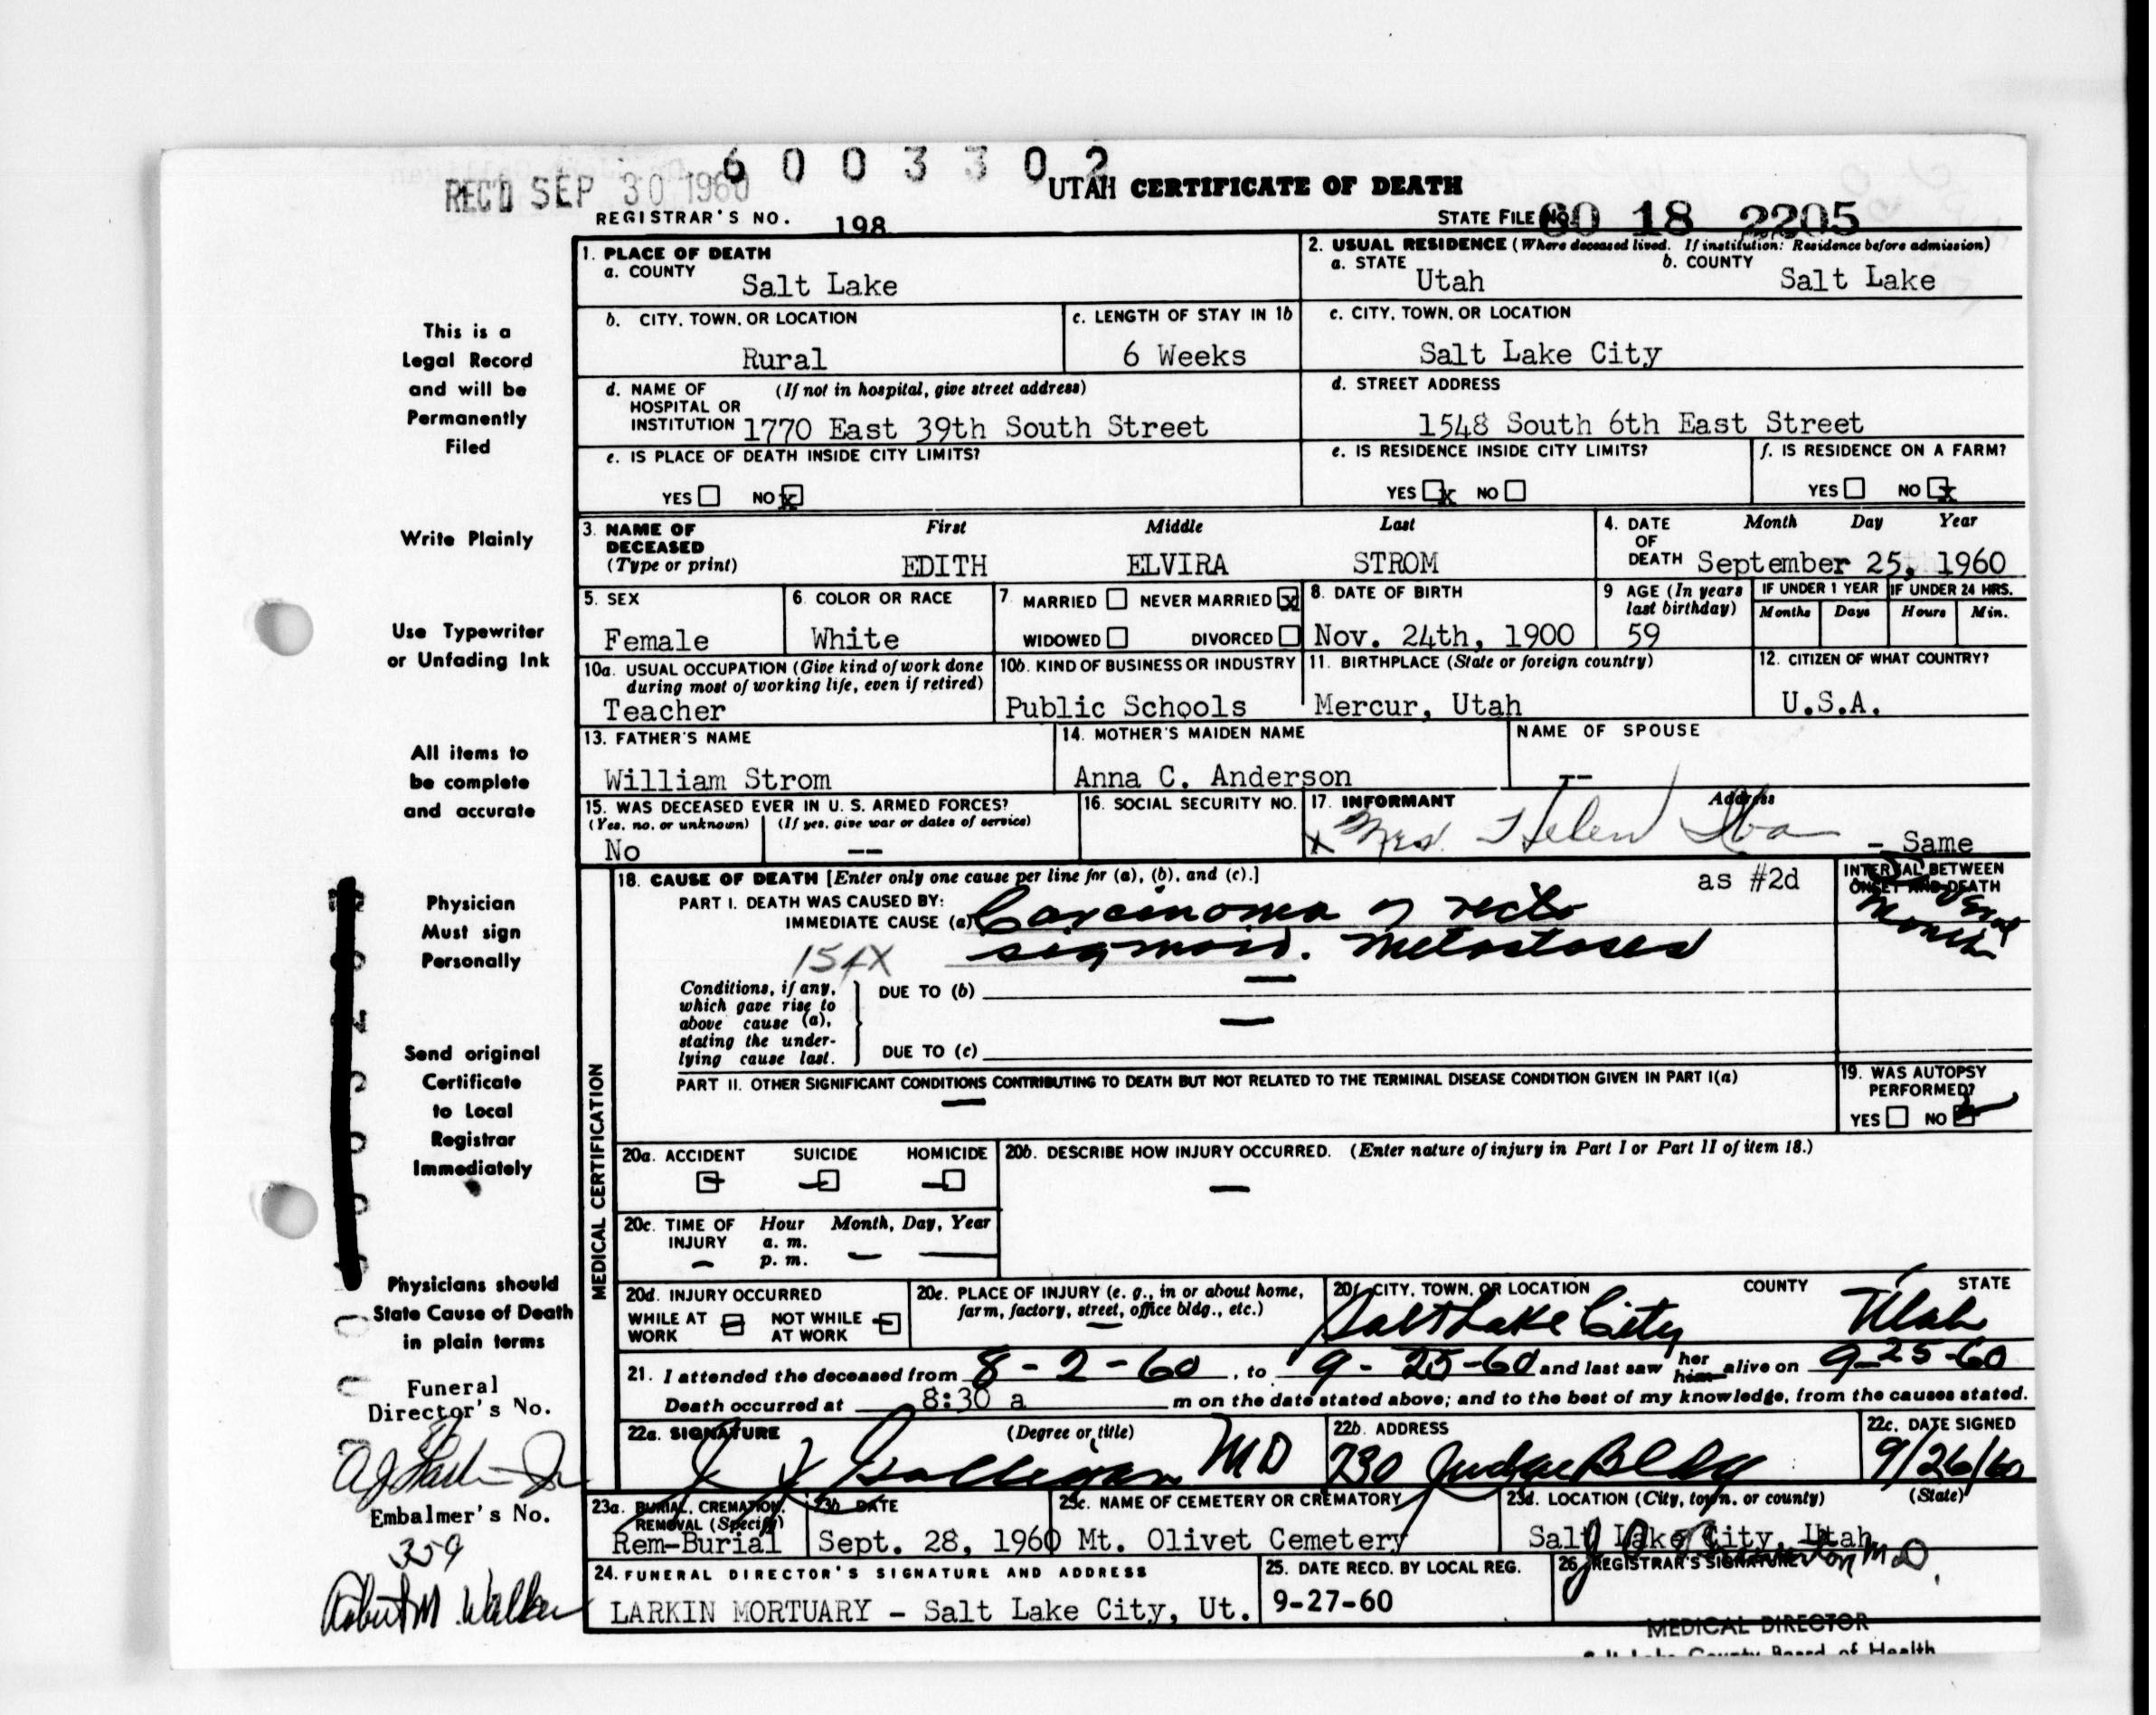 6 0 0 3 3 0 2
REC'D SEP 30 1960
UTAH CERTIFICATE OF DEATH
REGISTRAR'S NO. 198
STATE FILE NO. 60 18 2205
1. PLACE OF DEATH
a. COUNTY
Salt Lake
2. USUAL RESIDENCE (Where deceased lived. If institution: Residence before admission)
a. STATE b. COUNTY
Utah Salt Lake
b. CITY, TOWN, OR LOCATION
Rural
c. LENGTH OF STAY IN 1b
6 Weeks
c. CITY, TOWN, OR LOCATION
Salt Lake City
d. NAME OF (If not in hospital, give street address)
HOSPITAL OR
INSTITUTION 1770 East 39th South Street
d. STREET ADDRESS
1548 South 6th East Street
e. IS PLACE OF DEATH INSIDE CITY LIMITS?
YES NO x
e. IS RESIDENCE INSIDE CITY LIMITS?
YES x NO
f. IS RESIDENCE ON A FARM?
YES NO x
3. NAME OF
DECEASED
(Type or print)
First Middle Last
EDITH ELVIRA STROM
4. DATE
OF
DEATH
Month Day Year
September 25, 1960
5. SEX
Female
6. COLOR OR RACE
White
7. MARRIED NEVER MARRIED x
WIDOWED DIVORCED
8. DATE OF BIRTH
Nov. 24th, 1900
9 AGE (In years
last birthday)
59
IF UNDER 1 YEAR IF UNDER 24 HRS.
Months Days Hours Min.
10a. USUAL OCCUPATION (Give kind of work done
during most of working life, even if retired)
Teacher
10b. KIND OF BUSINESS OR INDUSTRY
Public Schools
11. BIRTHPLACE (State or foreign country)
Mercur, Utah
12. CITIZEN OF WHAT COUNTRY?
U.S.A.
13. FATHER'S NAME
William Strom
14. MOTHER'S MAIDEN NAME
Anna C. Anderson
NAME OF SPOUSE
--
15. WAS DECEASED EVER IN U. S. ARMED FORCES?
(Yes, no, or unknown) (If yes, give war or dates of service)
No --
16. SOCIAL SECURITY NO.
17. INFORMANT Address
x Mrs. Helen - Same
as #2d
MEDICAL CERTIFICATION
18. CAUSE OF DEATH [Enter only one cause per line for (a), (b), and (c).]
PART I. DEATH WAS CAUSED BY:
IMMEDIATE CAUSE (a) Carcinoma of recto
sigmoid. Metastases
154X
INTERVAL BETWEEN
ONSET AND DEATH
Several
months
Conditions, if any,
which gave rise to
above cause (a),
stating the under-
lying cause last.
DUE TO (b) —
DUE TO (c) —
PART II. OTHER SIGNIFICANT CONDITIONS CONTRIBUTING TO DEATH BUT NOT RELATED TO THE TERMINAL DISEASE CONDITION GIVEN IN PART I(a)
—
19. WAS AUTOPSY
PERFORMED?
YES NO
20a. ACCIDENT SUICIDE HOMICIDE
20b. DESCRIBE HOW INJURY OCCURRED. (Enter nature of injury in Part I or Part II of item 18.)
—
20c. TIME OF Hour Month, Day, Year
INJURY a. m.
— p. m. — —
20d. INJURY OCCURRED
WHILE AT NOT WHILE
WORK AT WORK
20e. PLACE OF INJURY (e. g., in or about home,
farm, factory, street, office bldg., etc.)
20f. CITY, TOWN, OR LOCATION COUNTY STATE
Salt Lake City Utah
21. I attended the deceased from 8 - 2 - 60, to 9 - 25 - 60 and last saw her him alive on 9-25-60
Death occurred at 8:30 a m on the date stated above; and to the best of my knowledge, from the causes stated.
22a. SIGNATURE (Degree or title)
J J Galligan MD
22b. ADDRESS
730 Judge Bldg
22c. DATE SIGNED
9/26/60
23a. BURIAL, CREMATION,
REMOVAL (Specify)
Rem-Burial
23b. DATE
Sept. 28, 1960
23c. NAME OF CEMETERY OR CREMATORY
Mt. Olivet Cemetery
23d. LOCATION (City, town, or county) (State)
Salt Lake City, Utah
24. FUNERAL DIRECTOR'S SIGNATURE AND ADDRESS
LARKIN MORTUARY - Salt Lake City, Ut.
25. DATE RECD. BY LOCAL REG.
9-27-60
26. REGISTRAR'S SIGNATURE
M.D.
MEDICAL DIRECTOR
Salt Lake County Board of Health
This is a
Legal Record
and will be
Permanently
Filed
Write Plainly
Use Typewriter
or Unfading Ink
All items to
be complete
and accurate
Physician
Must sign
Personally
Send original
Certificate
to Local
Registrar
Immediately
Physicians should
State Cause of Death
in plain terms
Funeral
Director's No.
Embalmer's No.
359
Robert M. Walker